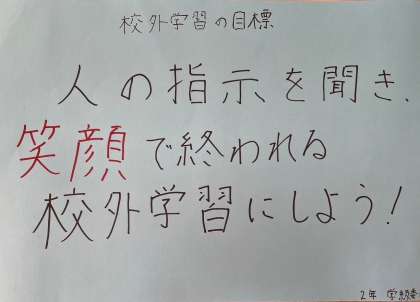 校外学習の目標
人の指示を聞き、
笑顔で終われる
校外学習にしよう!
2年 学級委